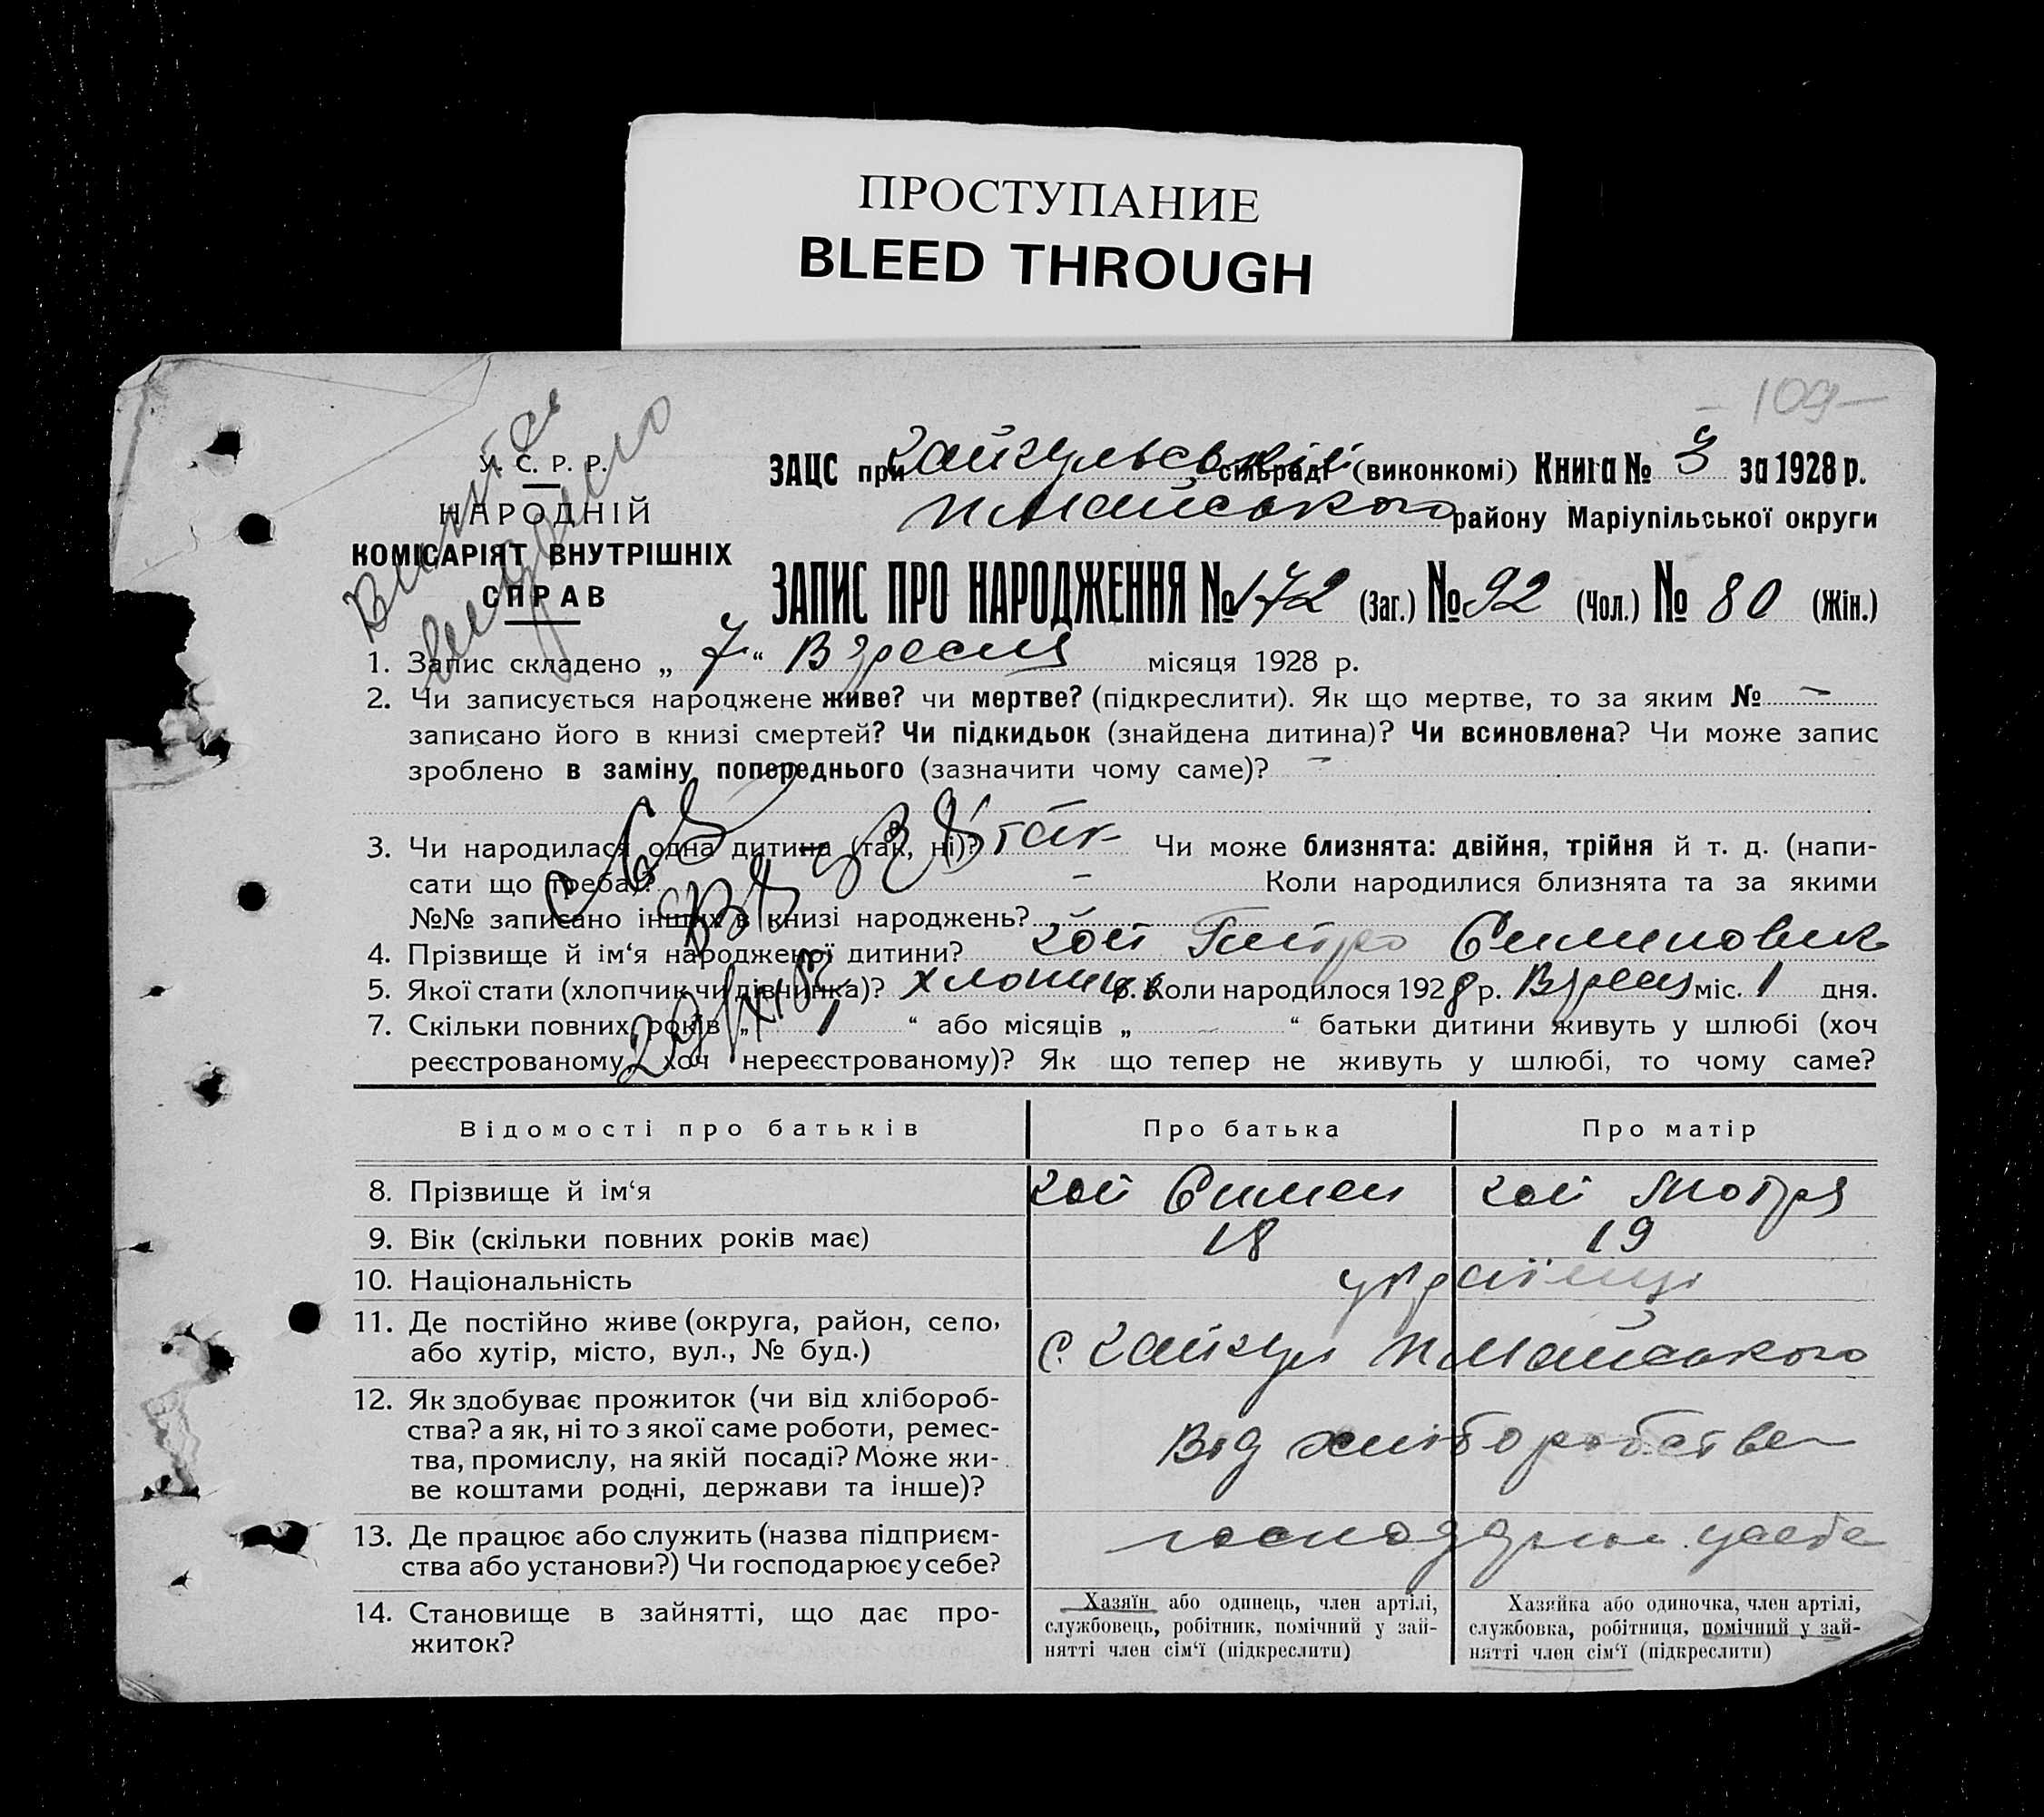 ПРОСТУПАНИЕ
BLEED THROUGH
- 109 -
У. С. Р. Р.
НАРОДНІЙ
КОМІСАРІЯТ ВНУТРІШНІХ
СПРАВ
ЗАЦС при сільраді (виконкомі) Книга № 3 за 1928 р.
району Маріупільської округи
ЗАПИС ПРО НАРОДЖЕННЯ № 172 (Заг.) № 92 (Чол.) № 80 (Жін.)
1. Запис складено „ 7 “ Вересня місяця 1928 р.
2. Чи записується народжене живе? чи мертве? (підкреслити). Як що мертве, то за яким № —
записано його в книзі смертей? Чи підкидьок (знайдена дитина)? Чи всиновлена? Чи може запис
зроблено в заміну попереднього (зазначити чому саме)? —
3. Чи народилася одна дитина (так, ні)? так Чи може близнята: двійня, трійня й т. д. (напи-
сати що треба)? — Коли народилися близнята та за якими
№№ записано інших в книзі народжень?
4. Прізвище й ім‘я народженої дитини? Петро
5. Якої стати (хлопчик чи дівчинка)? хлопчик 6. Коли народилося 1928 р. Вересня міс. 1 дня.
7. Скільки повних років „ 1 “ або місяців „ — “ батьки дитини живуть у шлюбі (хоч
реєстрованому, хоч нереєстрованому)? Як що тепер не живуть у шлюбі, то чому саме?
Відомості про батьків Про батька Про матір
8. Прізвище й ім‘я Мотря
9. Вік (скільки повних років має) 18 19
10. Національність українці
11. Де постійно живе (округа, район, село,
або хутір, місто, вул., № буд.)
12. Як здобуває прожиток (чи від хлібороб-
ства? а як, ні то з якої саме роботи, ремес-
тва, промислу, на якій посаді? Може жи-
ве коштами родні, держави та інше)?
Від хліборобства
13. Де працює або служить (назва підприєм-
ства або установи?) Чи господарює у себе?
14. Становище в зайнятті, що дає про-
житок?
Хазяїн або одинець, член артілі,
службовець, робітник, помічний у зай-
нятті член сім‘ї (підкреслити)
Хазяйка або одиночка, член артілі,
службовка, робітниця, помічний у зай-
нятті член сім‘ї (підкреслити)